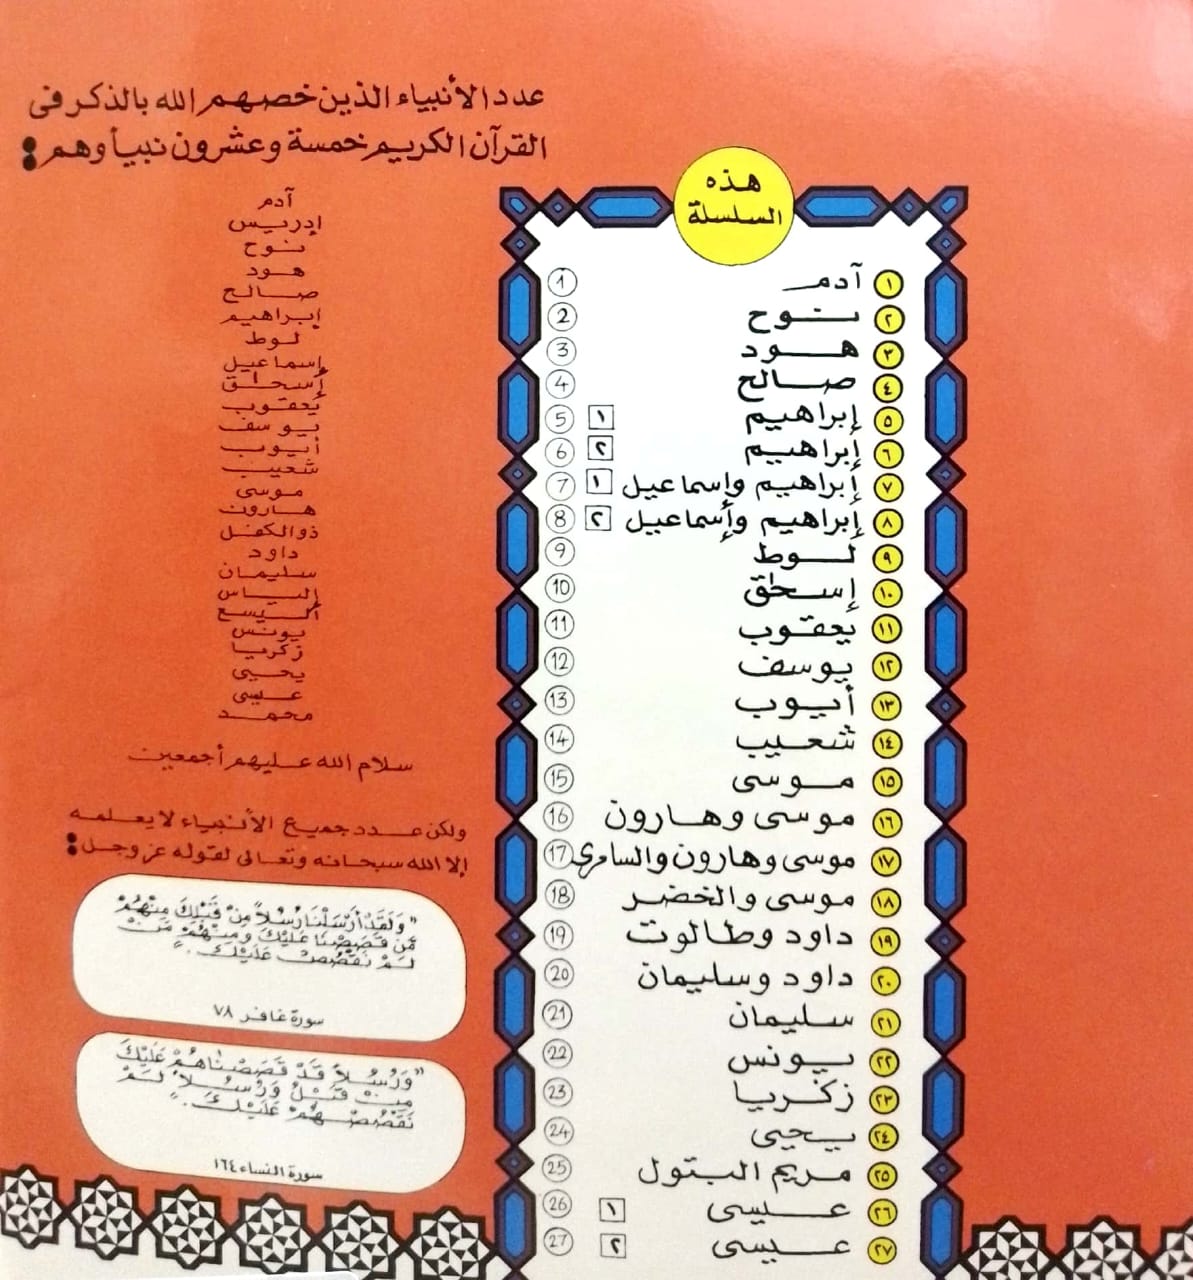 عدد الأنبياء الذين خصهم الله بالذكر فى
القرآن الكريم خمسة وعشرون نبيا وهم :
آدم
إدريس
نوح
هود
صالح
إبراهيم
لوط
إسماعيل
إسحاق
يعقوب
يوسف
أيوب
شعيب
موسى
هارون
ذو الكفل
داود
سليمان
إلياس
اليسع
يونس
زكريا
يحيى
عيسى
محمد
سلام الله عليهم أجمعين
ولكن عدد جميع الأنبياء لا يعلمه
إلا الله سبحانه وتعالى لقوله عز وجل :
"وَلَقَدْ أَرْسَلْنَا رُسُلاً مِنْ قَبْلِكَ مِنْهُمْ
مَّن قَصَصْنَا عَلَيْكَ وَمِنْهُمْ مَّنْ
لَمْ نَقْصُصْ عَلَيْكَ ."
سورة غافر ٧٨
"وَرُسُلاً قَدْ قَصَصْنَاهُمْ عَلَيْكَ
مِنْ قَبْلُ وَرُسُلاً لَمْ
نَقْصُصْهُمْ عَلَيْكَ ."
سورة النساء ١٦٤
هذه
السلسلة
١ آدم 1
٢ نوح 2
٣ هود 3
٤ صالح 4
٥ إبراهيم ١ 5
٦ إبراهيم ٢ 6
٧ إبراهيم وإسماعيل ١ 7
٨ إبراهيم وإسماعيل ٢ 8
٩ لوط 9
١٠ إسحق 10
١١ يعقوب 11
١٢ يوسف 12
١٣ أيوب 13
١٤ شعيب 14
١٥ موسى 15
١٦ موسى وهارون 16
١٧ موسى وهارون والسامرى 17
١٨ موسى والخضر 18
١٩ داود وطالوت 19
٢٠ داود وسليمان 20
٢١ سليمان 21
٢٢ يونس 22
٢٣ زكريا 23
٢٤ يحيى 24
٢٥ مريم البتول 25
٢٦ عيسى ١ 26
٢٧ عيسى ٢ 27